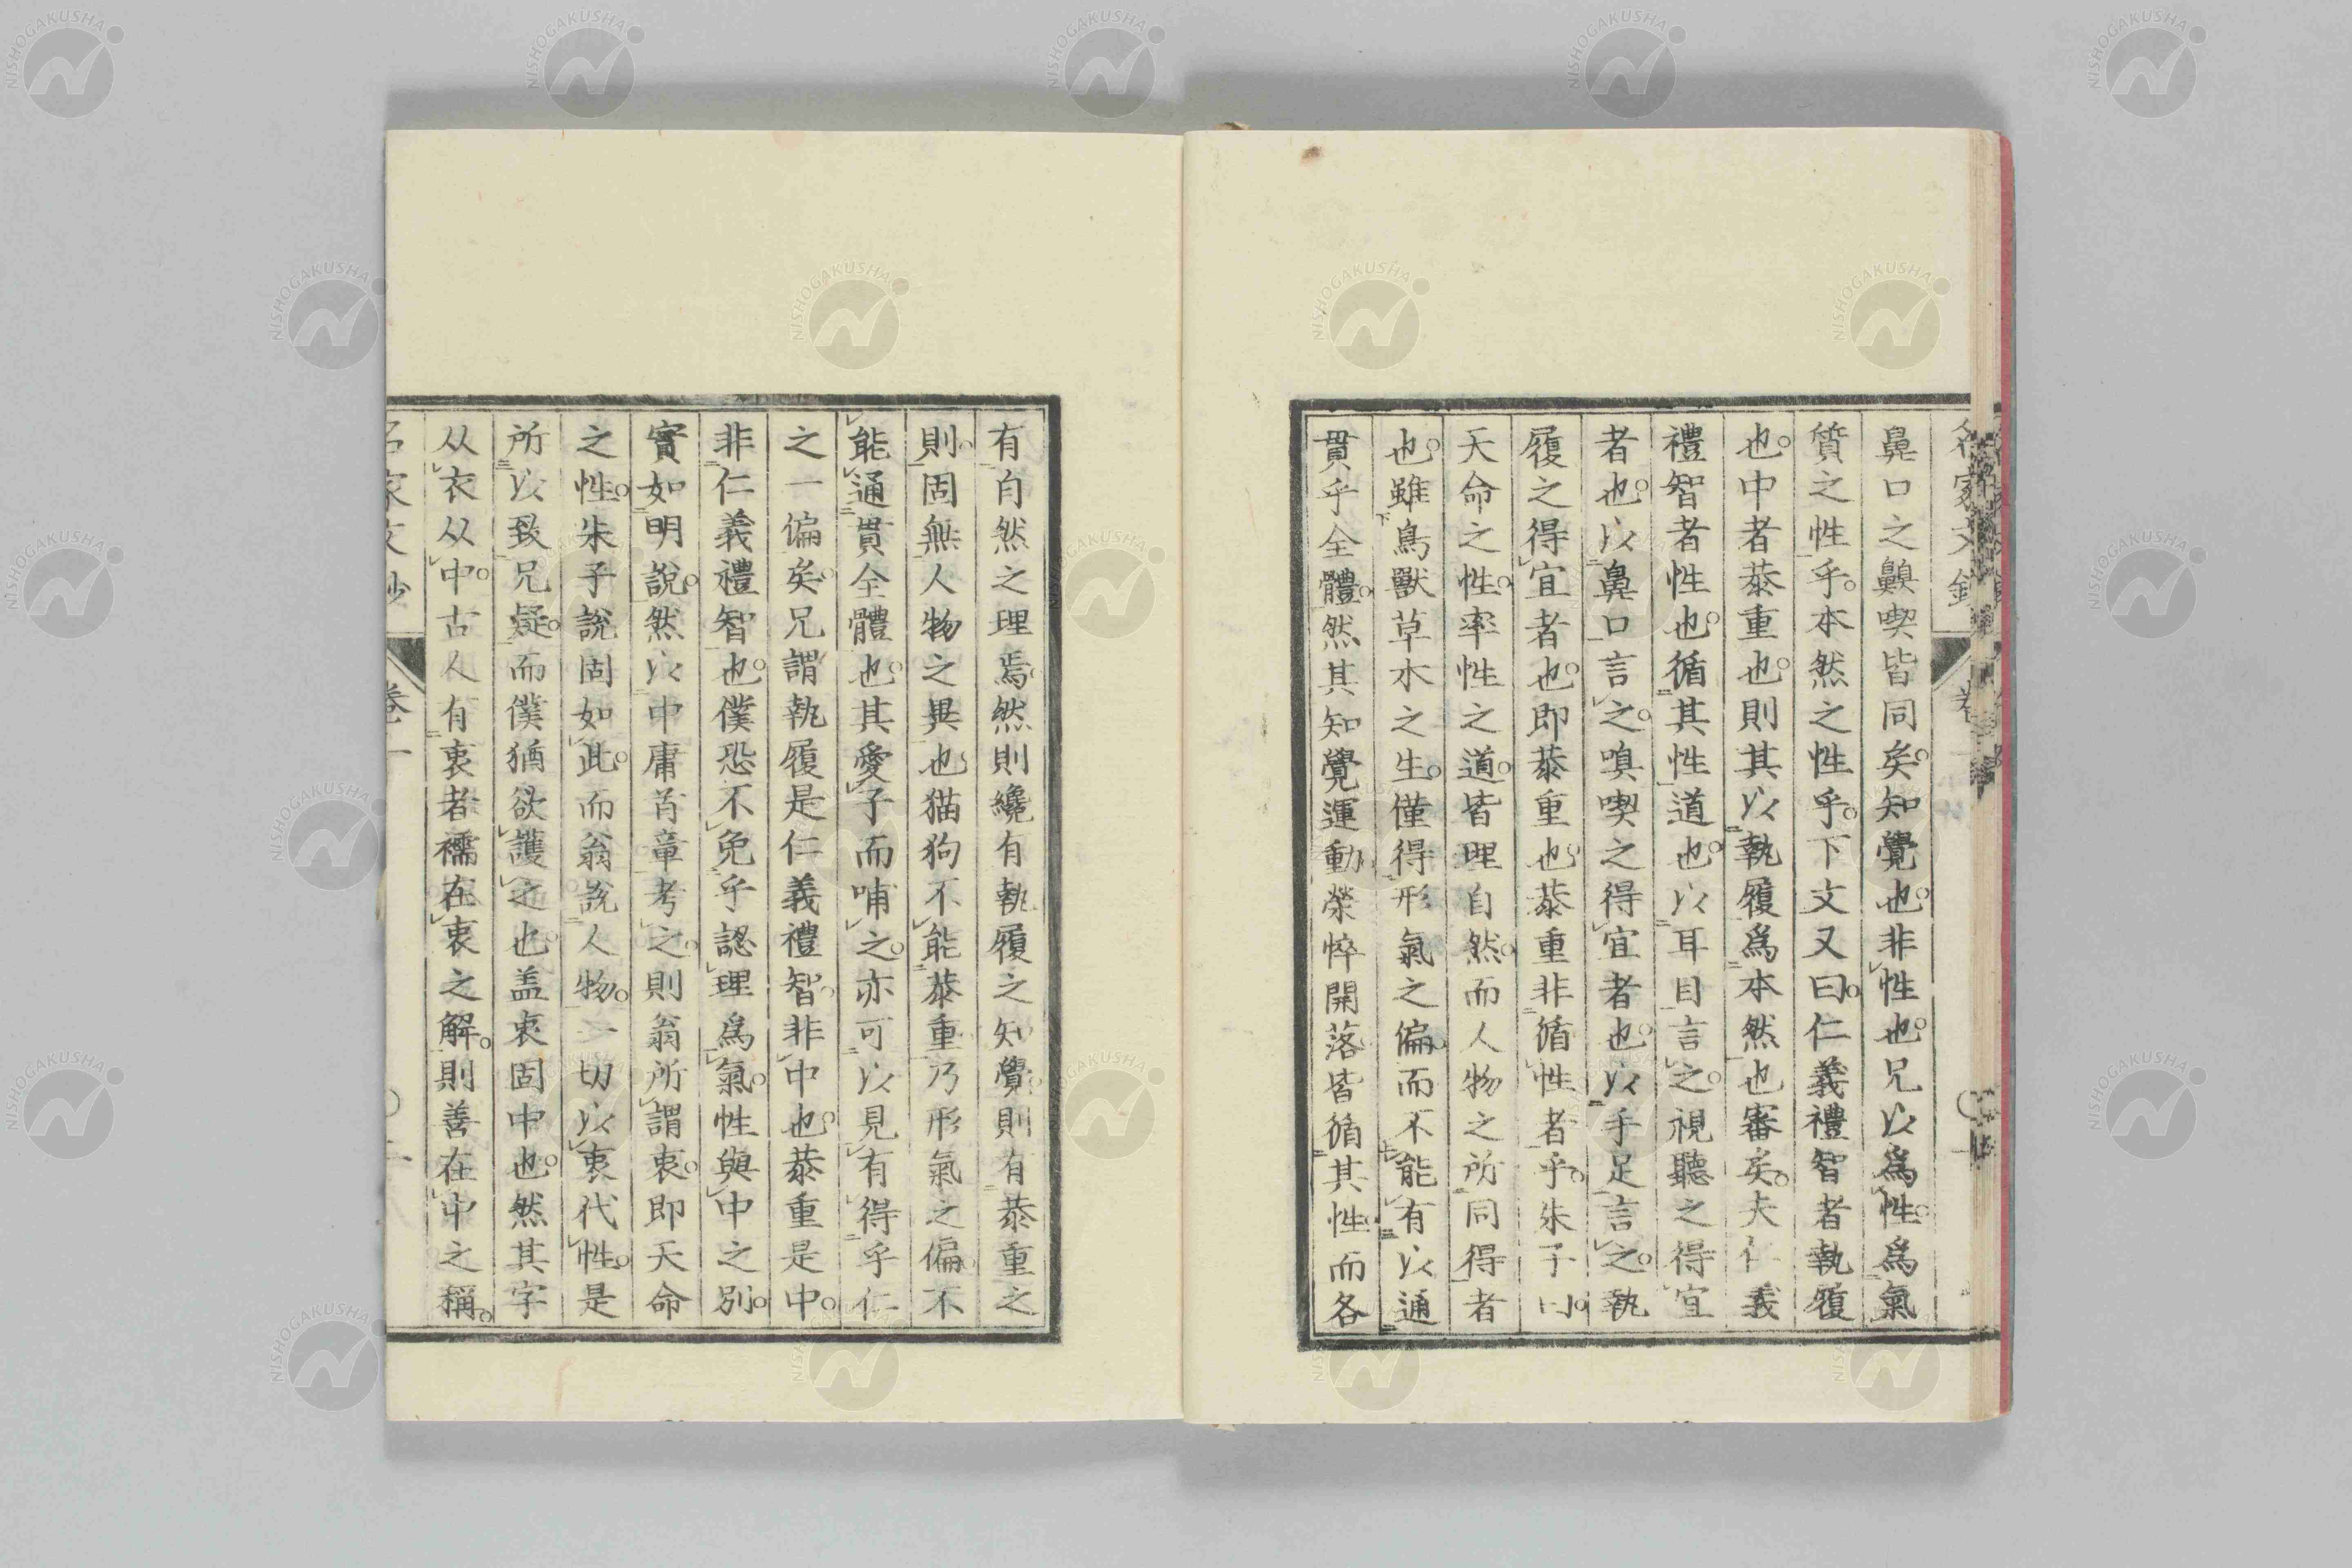 鼻口之齅喫皆同矣。知覺也。非性也。兄以爲性。爲氣
質之性乎。本然之性乎。下文又曰。仁義禮智者執履
也。中者恭重也。則其以執履爲本然也審矣。夫仁義
禮智者性也。循其性道也。以耳目言之。視聽之得宜
者也。以鼻口言之。嗅喫之得宜者也。以手足言之。執
履之得宜者也。即恭重也。恭重非循性者乎。朱子曰。
天命之性。率性之道。皆理自然。而人物之所同得者
也。雖鳥獸草木之生。僅得形氣之偏。而不能有以通
貫乎全體。然其知覺運動。榮悴開落。皆循其性。而各
有自然之理焉。然則纔有執履之知覺。則有恭重之
則。固無人物之異也。猫狗不能恭重。乃形氣之偏。不
能通貫全體也。其愛子而哺之。亦可以見有得乎仁
之一偏矣。兄謂執履是仁義禮智。非中也。恭重是中。
非仁義禮智也。僕恐不免乎認理爲氣。性與中之別。
實如明說。然以中庸首章考之。則翁所謂衷。即天命
之性。朱子說固如此。而翁說人物。一切以衷代性。是
所以致兄疑。而僕猶欲護之也。盖衷固中也。然其字
从衣从中。古人有衷者襦在衷之解。則善在中之稱。
名家文抄 卷一
NISHOGAKUSHA